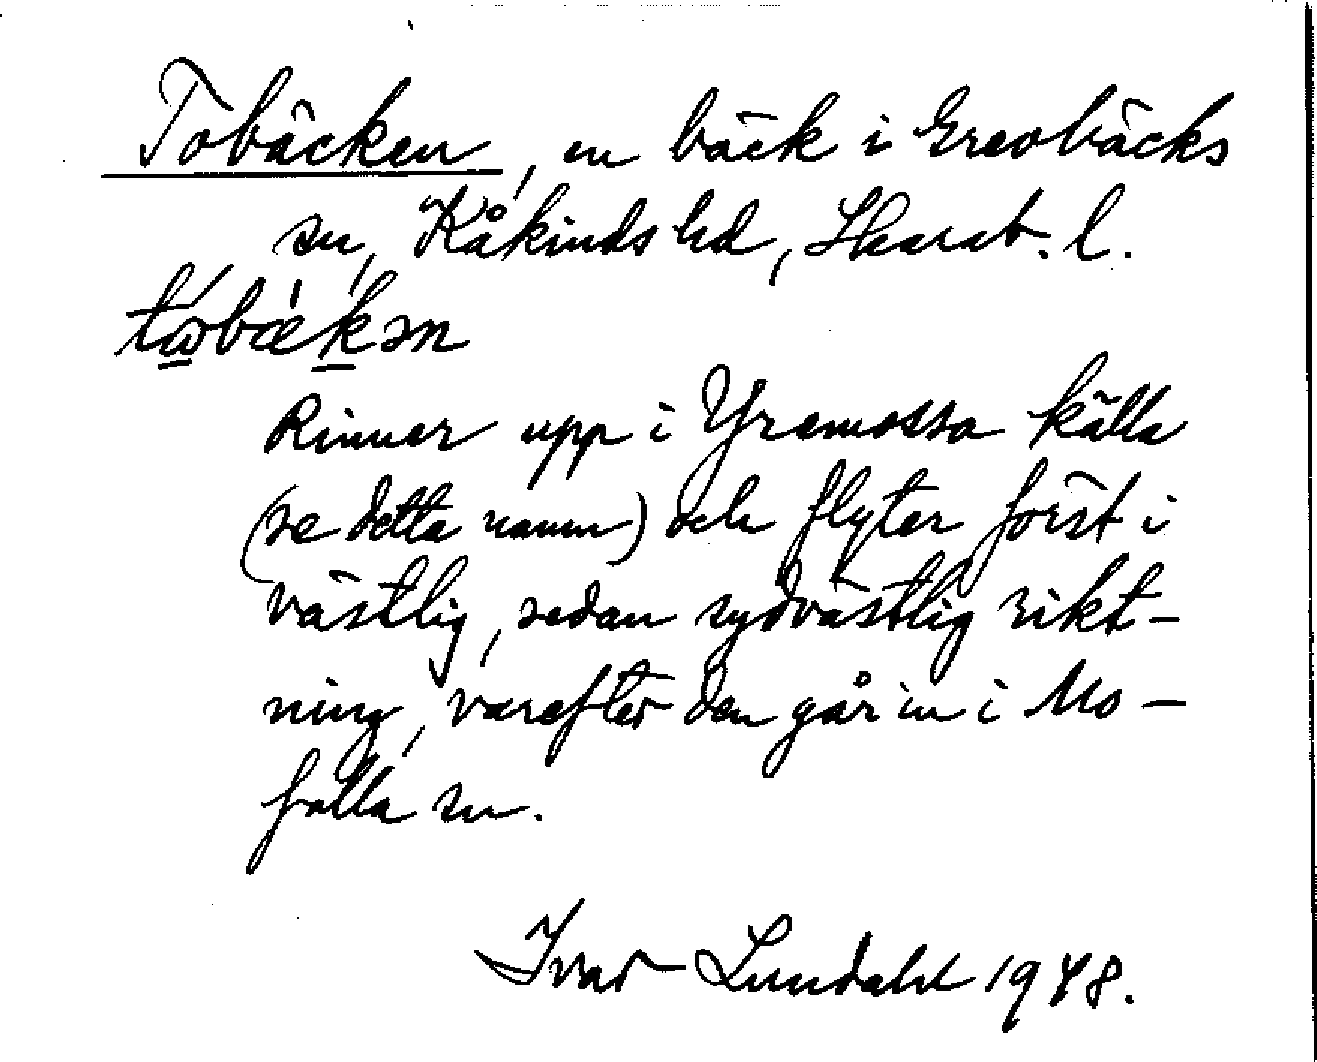 Tobäcken, en bäck i Grevbäcks
sn, Kåkinds hd, Skarab. l.
tώ̲bæ̀k̲ən
Rinner upp i Yremossa källa
(se detta namn) och flyter först i
västlig, sedan sydvästlig rikt-
ning, varefter den går in i Mo-
falla sn.
Ivar Lundahl 1948.